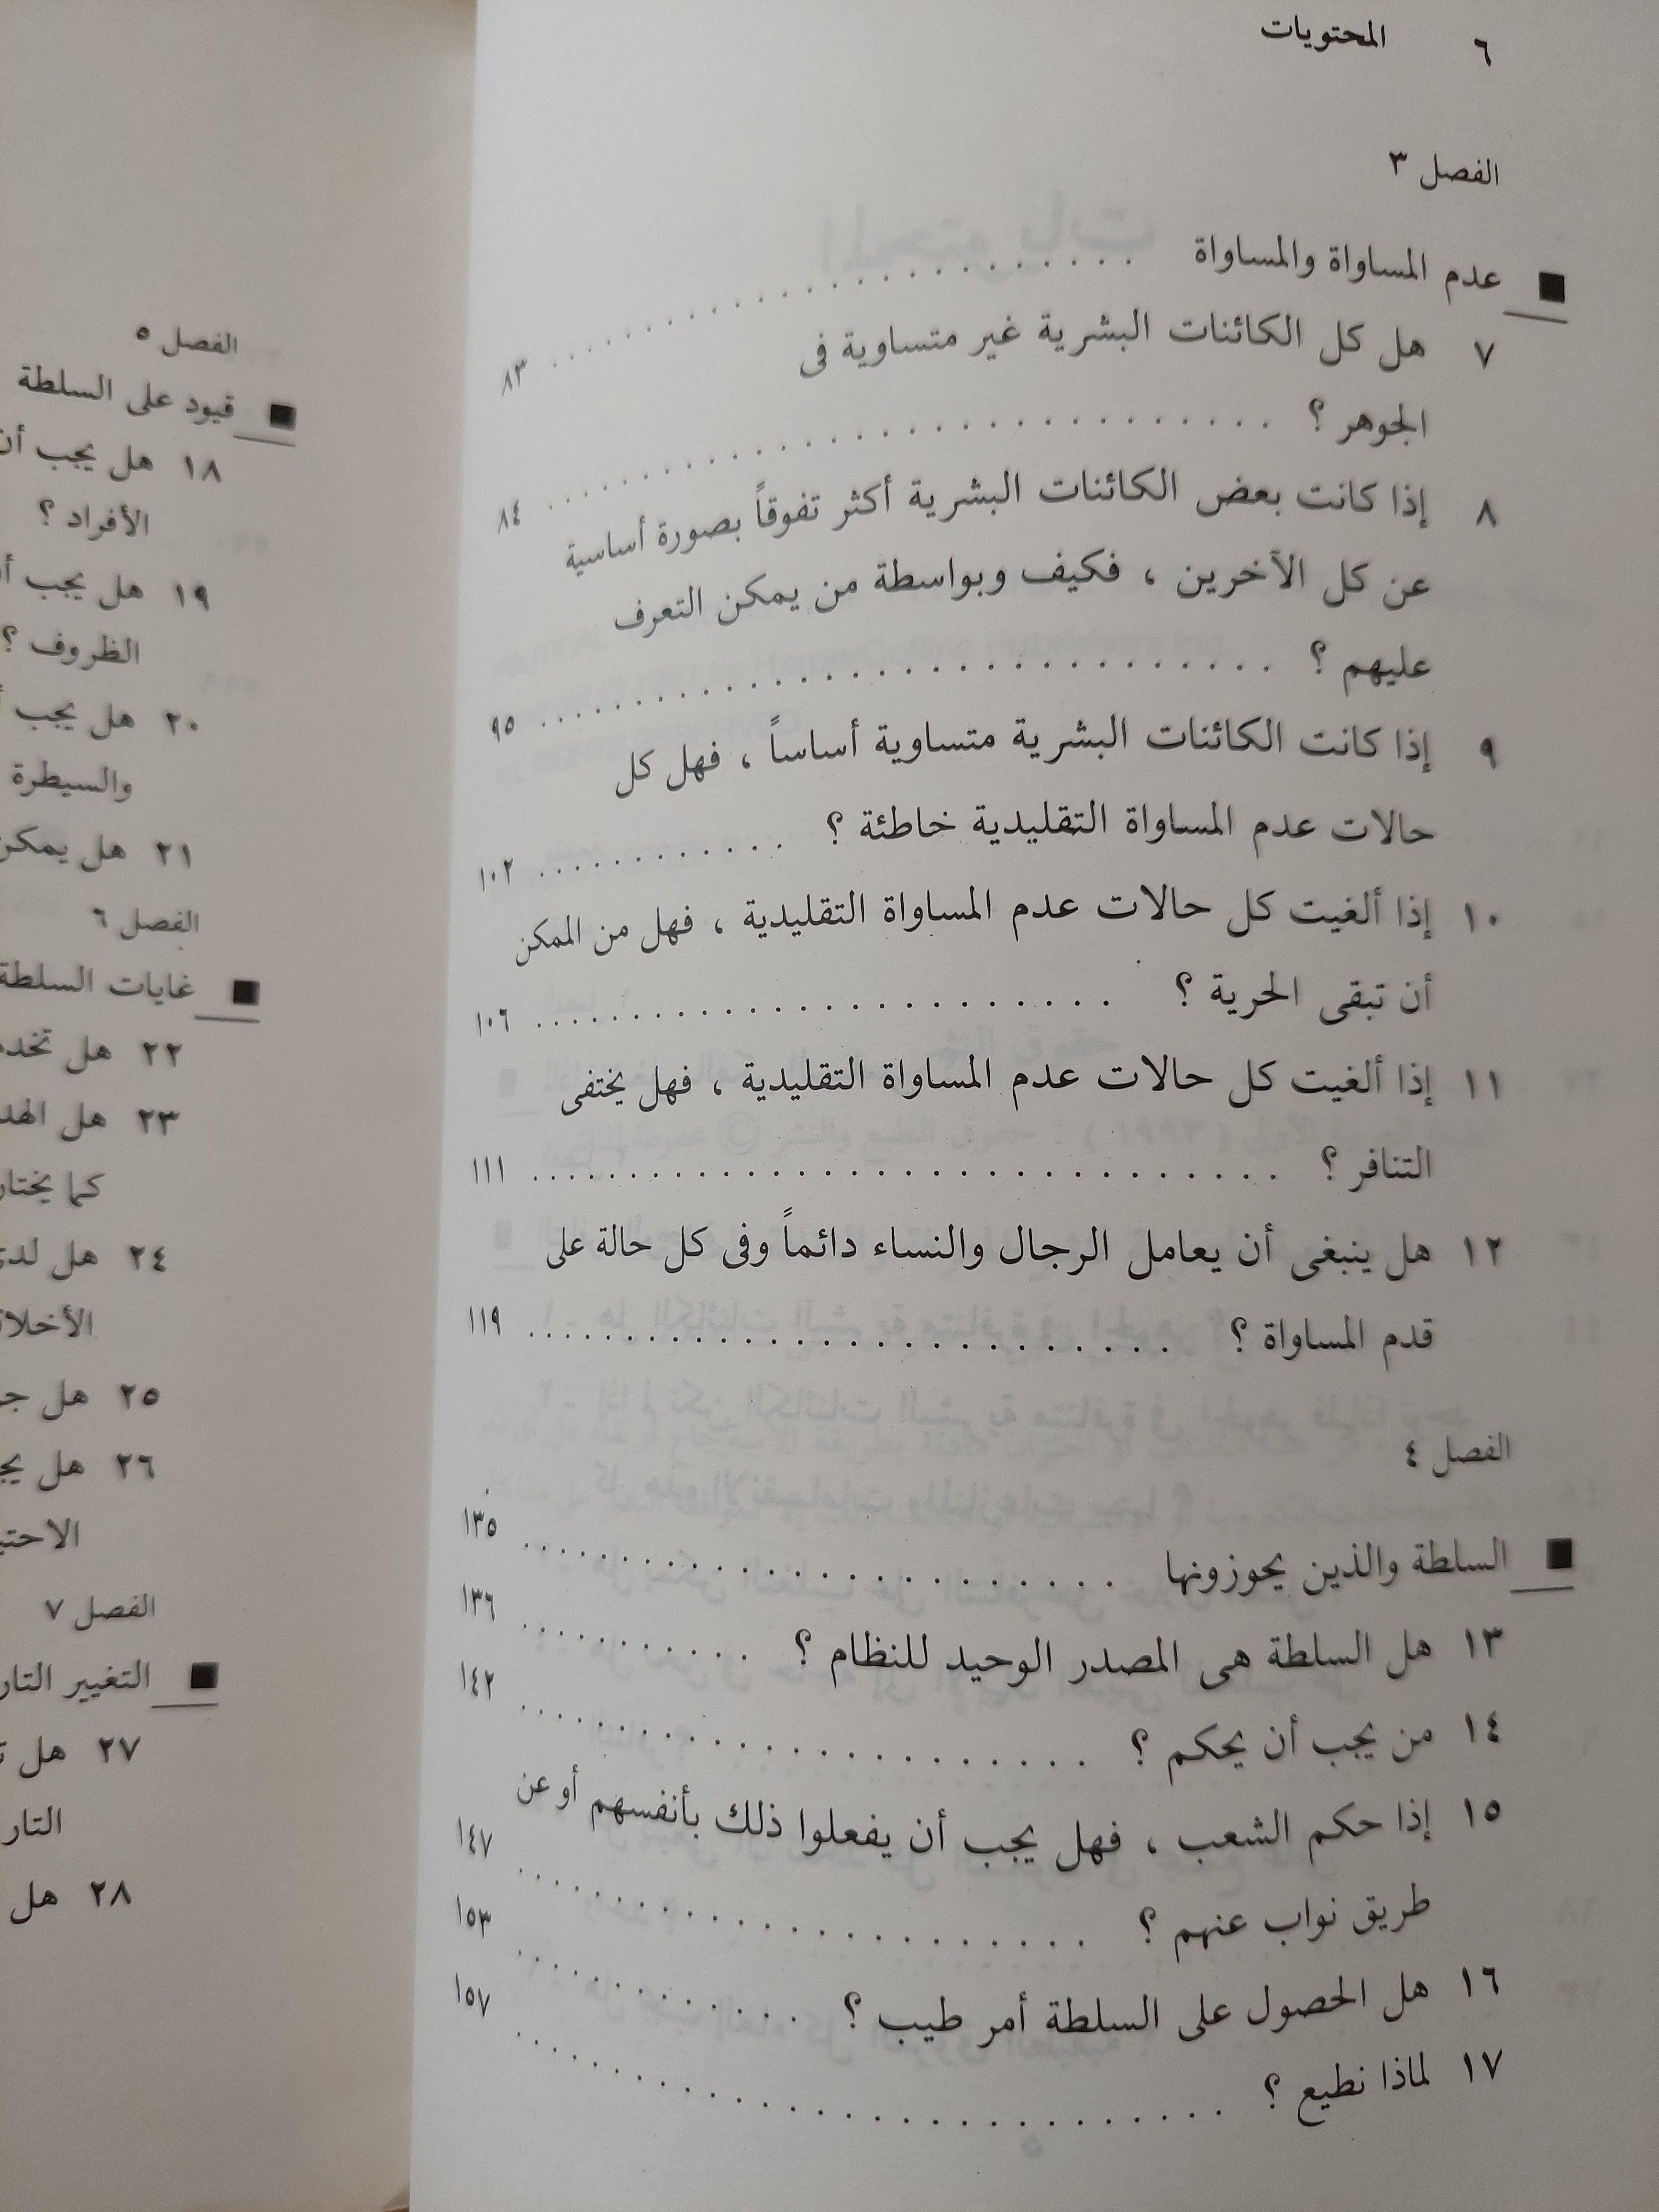 ٦ المحتويات
الفصل ٣
■ عدم المساواة والمساواة . . . . . . . . . . . . . . . . . . . . ٨٣
٧ هل كل الكائنات البشرية غير متساوية فى
الجوهر ؟ . . . . . . . . . . . . . . . . . . . . ٨٤
٨ إذا كانت بعض الكائنات البشرية أكثر تفوقاً بصورة أساسية
عن كل الآخرين ، فكيف وبواسطة من يمكن التعرف
عليهم ؟ . . . . . . . . . . . . . . . . . . . . ٩٥
٩ إذا كانت الكائنات البشرية متساوية أساساً ، فهل كل
حالات عدم المساواة التقليدية خاطئة ؟ . . . . . . . . . . . ١٠٢
١٠ إذا ألغيت كل حالات عدم المساواة التقليدية ، فهل من الممكن
أن تبقى الحرية ؟ . . . . . . . . . . . . . . . . . . . . ١٠٦
١١ إذا ألغيت كل حالات عدم المساواة التقليدية ، فهل يختفى
التنافر ؟ . . . . . . . . . . . . . . . . . . . . ١١١
١٢ هل ينبغى أن يعامل الرجال والنساء دائماً وفى كل حالة على
قدم المساواة ؟ . . . . . . . . . . . . . . . . . . . . ١١٩
الفصل ٤
■ السلطة والذين يحوزونها . . . . . . . . . . . . . . . . . . . . ١٣٥
١٣ هل السلطة هى المصدر الوحيد للنظام ؟ . . . . . . . . . . . ١٣٦
١٤ من يجب أن يحكم ؟ . . . . . . . . . . . . . . . . . . . . ١٤٢
١٥ إذا حكم الشعب ، فهل يجب أن يفعلوا ذلك بأنفسهم أو عن
طريق نواب عنهم ؟ . . . . . . . . . . . . . . . . . . . . ١٤٧
١٦ هل الحصول على السلطة أمر طيب ؟ . . . . . . . . . . . ١٥٣
١٧ لماذا نطيع ؟ . . . . . . . . . . . . . . . . . . . . ١٥٧
الفصل ٥
■ قيود على السلطة
١٨ هل يجب
الأفراد ؟
١٩ هل يجب
الظروف ؟
٢٠ هل يجب
والسيطرة
٢١ هل
الفصل ٦
■ غايات السلطة
٢٢ هل
٢٣ هل
كما
٢٤ هل
٢٥ هل
٢٦ هل
الفصل ٧
■ التغيير
٢٧ هل
٢٨ هل